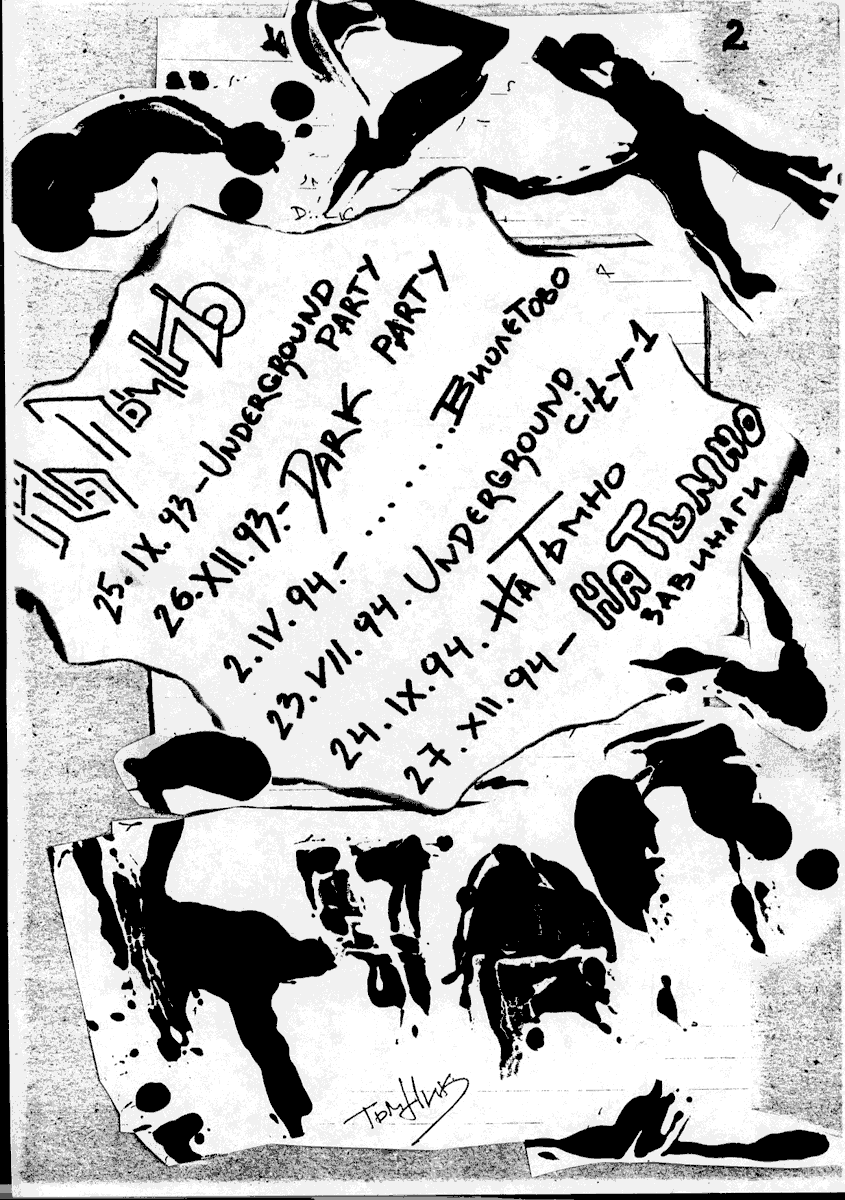 2
На Тъмно
25.IX.93 - UNDERGROUND
PARTY
26.XII.93. - DARK PARTY
2.IV.94. - ........ Виолетово
23.VII.94. UNDERGROUND
city-1
24.IX.94. На Тъмно
27.XII.94 - На Тъмно
завинаги